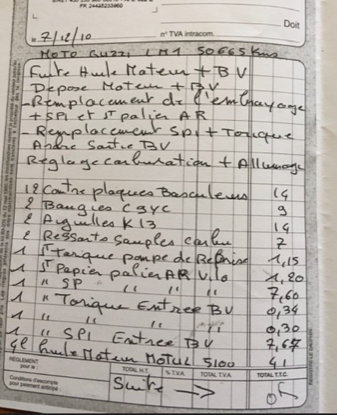 PR 24425233960
Doit
le 7/12/10 n° TVA intracom.
MOTO GUZZI LM1 50665 Kms
Fuite Huile Moteur + BV
Depose Moteur + BV
- Remplacement de l'embrayage
+ SPI et Jt palier AR
- Remplacement SPI + Torique
Arbre Sortie BV
Reglage carburation + Allumage
12 Contre plaques Basculeurs 14
2 Bangles C9YC 9
2 Aiguilles K13 14
2 Ressorts Souples carbu 7
1 Jt torique pompe de Reprise 1,15
1 Jt Papier palier AR Vilo 1,20
1 " SP " " " 7,60
1 " Torique Entree BV 0,34
1 " " " 0,30
1 " SPI Entree BV 7,67
4l huile Moteur Motul 5100 41
RÈGLEMENT pour le TOTAL H.T. % T.V.A. TOTAL T.V.A. TOTAL T.T.C.
Conditions d'escompte pour paiement anticipé :
Suite →